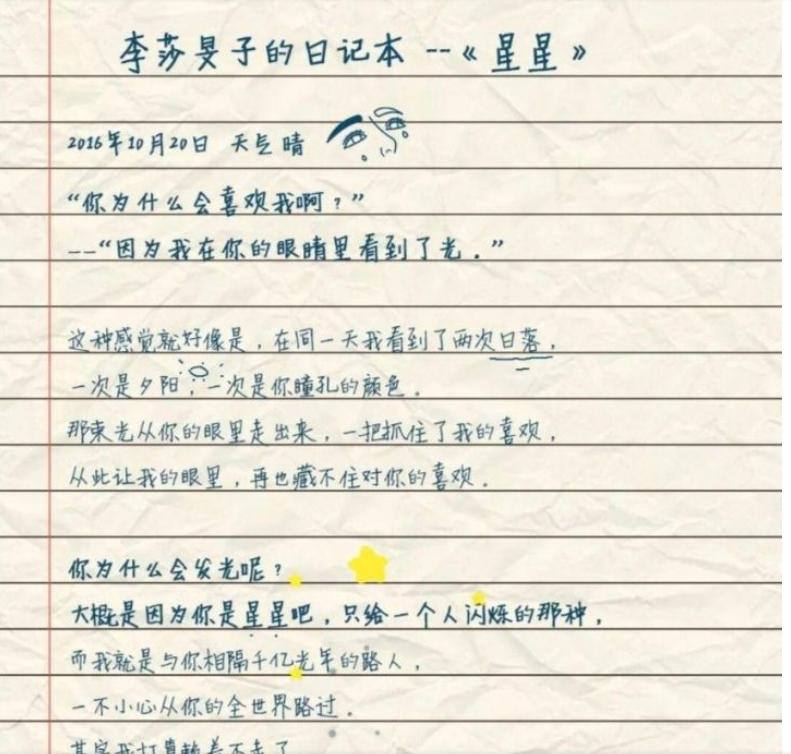 李莎旻子的日记本 --《星星》
2016年10月20日 天气 晴
“你为什么会喜欢我啊？”
--“因为我在你的眼睛里看到了光.”
这种感觉就好像是，在同一天我看到了两次日落，
一次是夕阳，一次是你瞳孔的颜色.
那束光从你的眼里走出来，一把抓住了我的喜欢，
从此让我的眼里，再也藏不住对你的喜欢.
你为什么会发光呢？
大概是因为你是星星吧，只给一个人闪烁的那种，
而我就是与你相隔千亿光年的路人，
一不小心从你的全世界路过.
其实我打算赖着不走了